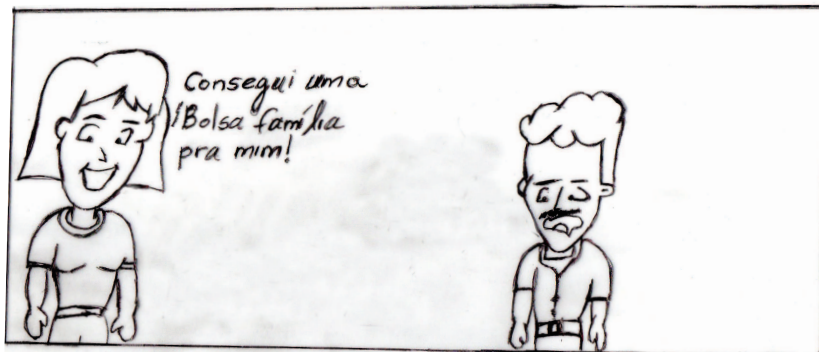 Consegui uma
Bolsa família
pra mim!